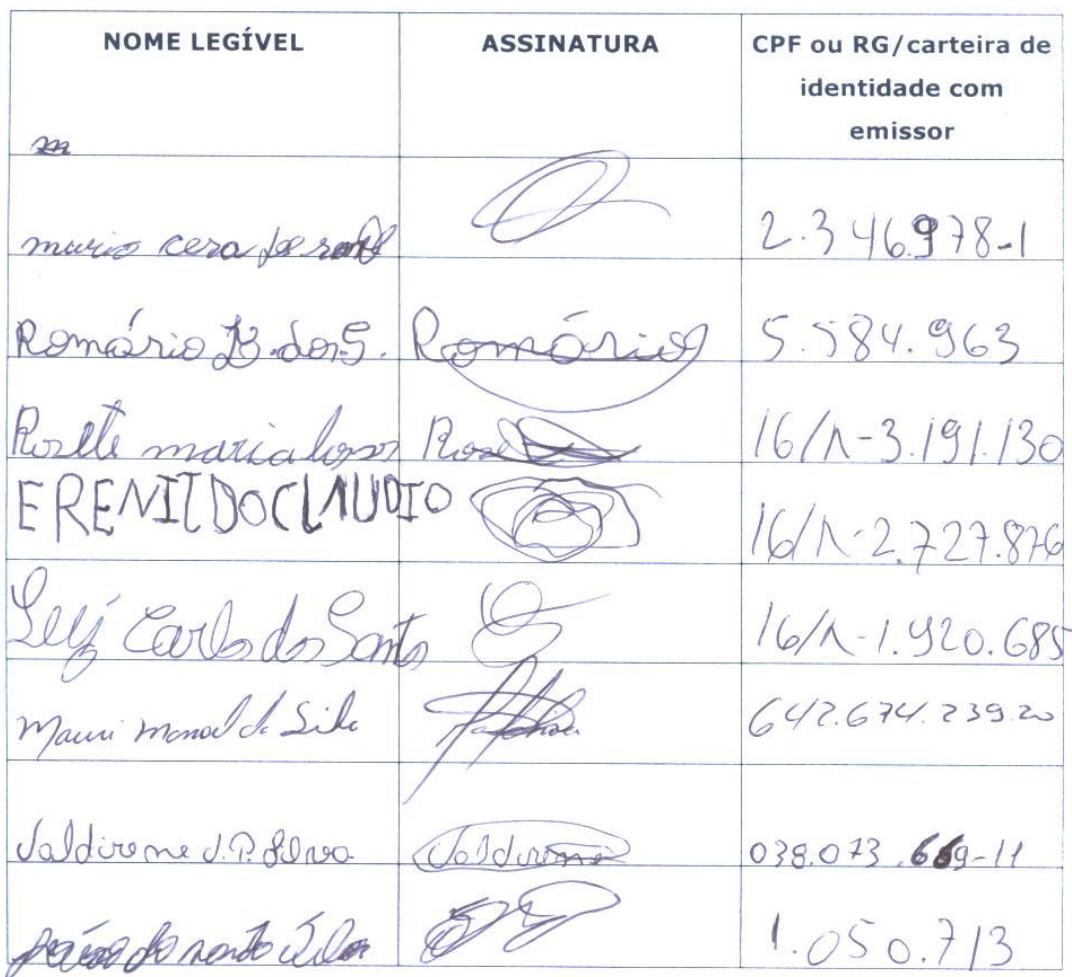 NOME LEGÍVEL ASSINATURA CPF ou RG/carteira de
identidade com
emissor
mario cera 2.346.978-1
Romário B. dos S. Romário 5.584.963
Rosete maria Rose 16/R-3.191.130
ERENILDO CLAUDIO 16/R-2.727.876
Luiz Carlos dos Santos 16/R-1.920.685
Mauri Manoel da Silva 642.674.239.20
Valdirene J.P. Silva Valdirene 038.073.669-11
1.050.713